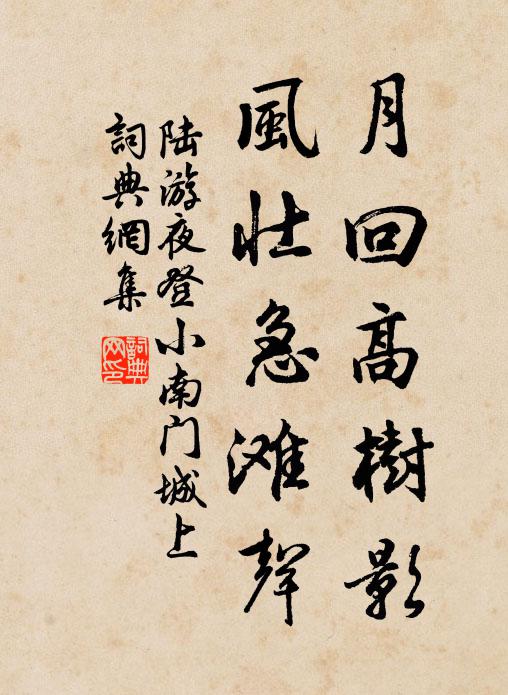 月回高樹影
風壮急滩聲
陆游夜登小南门城上
詞典網集
詞典網印